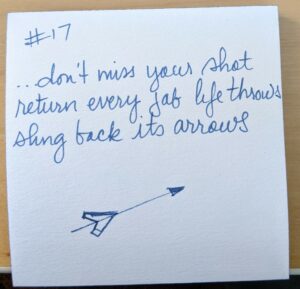 #17
..don't miss your shot
return every jab life throws
sling back its arrows